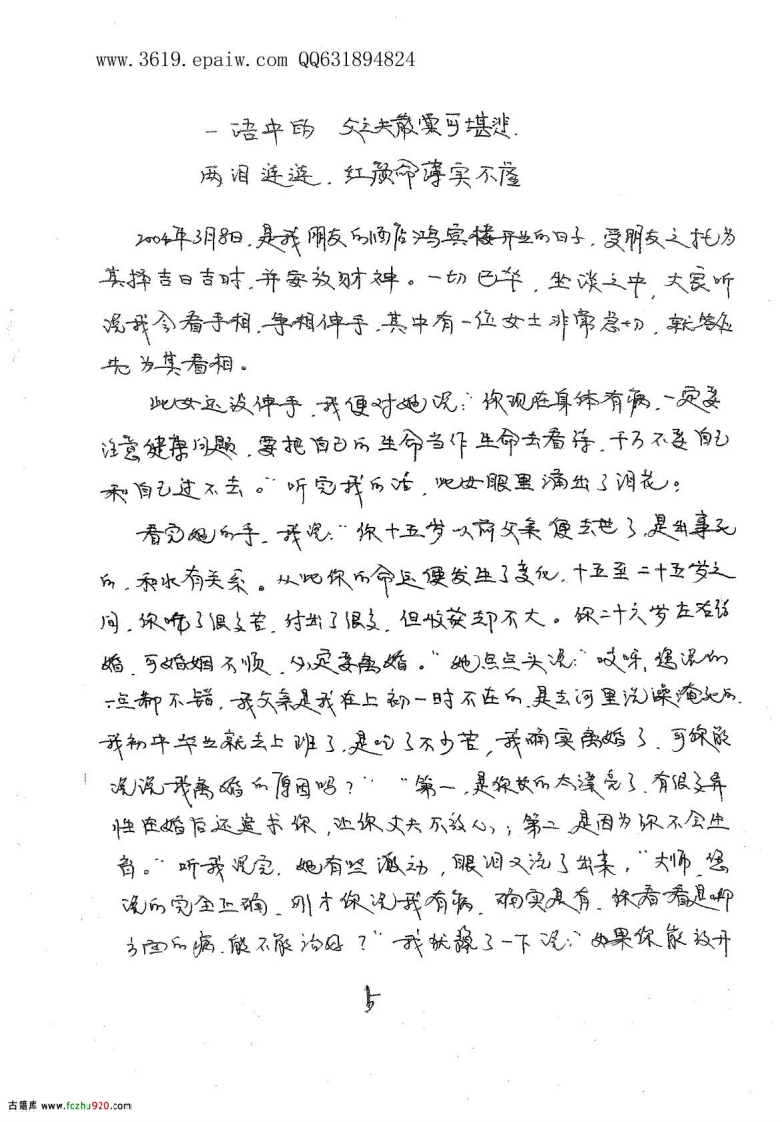 www.3619.epaiw.com QQ631894824
一语中的 父亡夫散实可堪悲.
两泪连连. 红颜命薄实不虚
2004年3月8日.是我朋友的酒店鸿宾楼开业的日子,受朋友之托为
其择吉日吉时.并安放财神。一切已毕,坐谈之中,大家听
说我会看手相.争相伸手.其中有一位女士非常急切,就答应
先为其看相。
此女还没伸手.我便对她说:"你现在身体有病.一定要
注意健康问题,要把自己的生命当作生命去看待.千万不要自己
和自己过不去。"听完我的话,此女眼里滴出了泪花。
看完她的手.我说:"你十五岁以前父亲便去世了.是出事死
的.和水有关系。从此你的命运便发生了变化.十五至二十五岁之
间.你吃了很多苦.付出了很多.但收获却不大。你二十六岁左右结
婚.可婚姻不顺.必定要离婚。"她点点头说:"哎呀,您说的
一点都不错,我父亲是我在上初一时不在的.是去河里洗澡淹死的.
我初中毕业就去上班了.是吃了不少苦,我确实离婚了.可你能
说说我离婚的原因吗?""第一,是你长的太漂亮了.有很多异
性在婚后还追求你,让你丈夫不放心;第二.是因为你不会生
育。"听我说完.她有些激动,眼泪又流了出来,"大师.您
说的完全正确.刚才你说我有病.确实是有.你看看是哪
方面的病.能不能治好?"我犹豫了一下说:"如果你能放开
5
古籍库 www.fczhu920.com